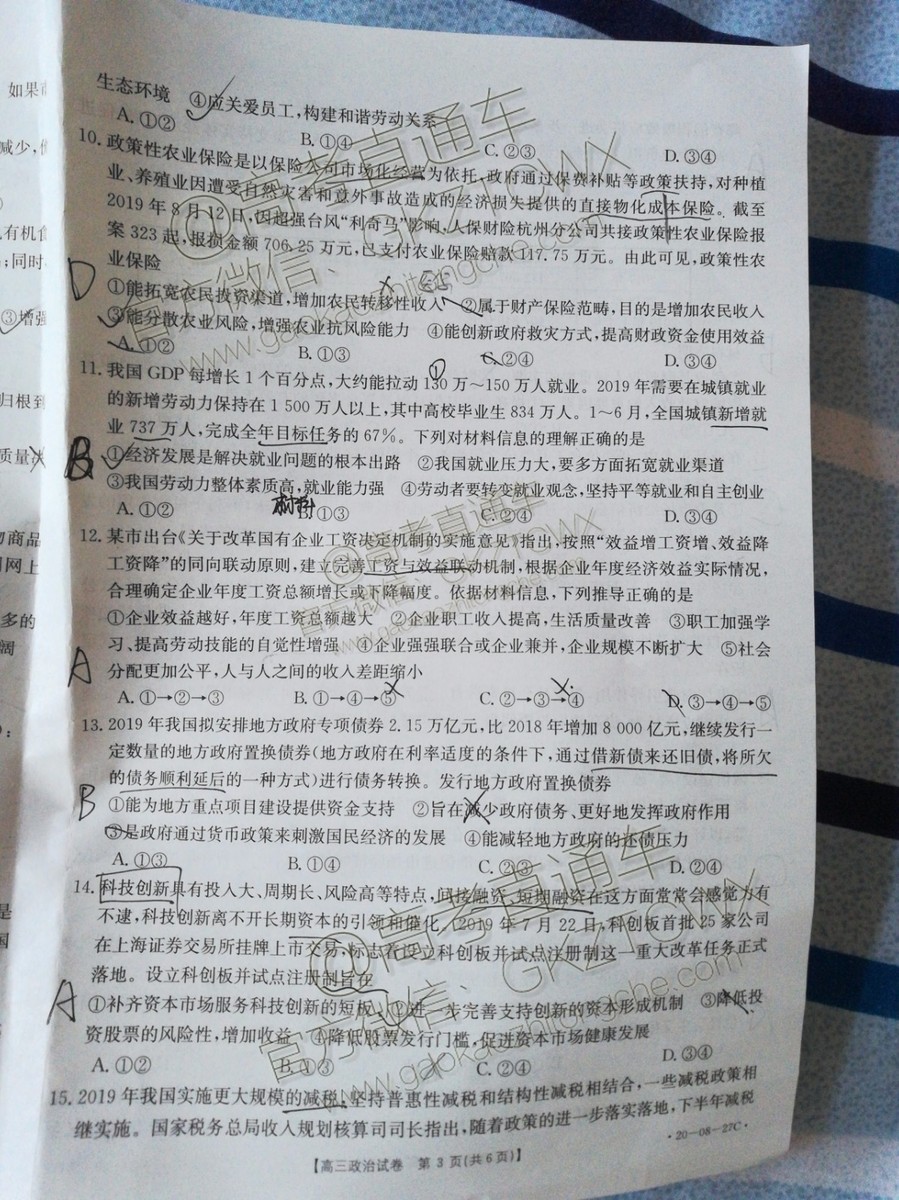 生态环境 ④应关爱员工,构建和谐劳动关系
A.①② B.①④ C.②③ D.③④
10.政策性农业保险是以保险公司市场化经营为依托,政府通过保费补贴等政策扶持,对种植
业、养殖业因遭受自然灾害和意外事故造成的经济损失提供的直接物化成本保险。截至
2019年8月12日,因超强台风“利奇马”影响,人保财险杭州分公司共接政策性农业保险报
案323起,报损金额706.25万元,已支付农业保险赔款117.75万元。由此可见,政策性农
业保险
D
①能拓宽农民投资渠道,增加农民转移性收入 ②属于财产保险范畴,目的是增加农民收入
③能分散农业风险,增强农业抗风险能力 ④能创新政府救灾方式,提高财政资金使用效益
A.①② B.①③ C.②④ D.③④
11.我国GDP每增长1个百分点,大约能拉动130万~150万人就业。2019年需要在城镇就业
的新增劳动力保持在1500万人以上,其中高校毕业生834万人。1~6月,全国城镇新增就
业737万人,完成全年目标任务的67%。下列对材料信息的理解正确的是
B
①经济发展是解决就业问题的根本出路 ②我国就业压力大,要多方面拓宽就业渠道
③我国劳动力整体素质高,就业能力强 ④劳动者要转变就业观念,坚持平等就业和自主创业
A.①② B.①③ C.②④ D.③④
12.某市出台《关于改革国有企业工资决定机制的实施意见》指出,按照“效益增工资增、效益降
工资降”的同向联动原则,建立完善工资与效益联动机制,根据企业年度经济效益实际情况,
合理确定企业年度工资总额增长或下降幅度。依据材料信息,下列推导正确的是
①企业效益越好,年度工资总额越大 ②企业职工收入提高,生活质量改善 ③职工加强学
习、提高劳动技能的自觉性增强 ④企业强强联合或企业兼并,企业规模不断扩大 ⑤社会
分配更加公平,人与人之间的收入差距缩小
A
A.①→②→③ B.①→④→⑤ C.②→③→④ D.③→④→⑤
13.2019年我国拟安排地方政府专项债券2.15万亿元,比2018年增加8000亿元,继续发行一
定数量的地方政府置换债券(地方政府在利率适度的条件下,通过借新债来还旧债,将所欠
的债务顺利延后的一种方式)进行债务转换。发行地方政府置换债券
B
①能为地方重点项目建设提供资金支持 ②旨在减少政府债务、更好地发挥政府作用
③是政府通过货币政策来刺激国民经济的发展 ④能减轻地方政府的还债压力
A.①③ B.①④ C.②③ D.②④
14.科技创新具有投入大、周期长、风险高等特点,间接融资、短期融资在这方面常常会感觉力有
不逮,科技创新离不开长期资本的引领和催化。2019年7月22日,科创板首批25家公司
在上海证券交易所挂牌上市交易,标志着设立科创板并试点注册制这一重大改革任务正式
落地。设立科创板并试点注册制旨在
A
①补齐资本市场服务科技创新的短板 ②进一步完善支持创新的资本形成机制 ③降低投
资股票的风险性,增加收益 ④降低股票发行门槛,促进资本市场健康发展
A.①② B.①③ C.②④ D.③④
15.2019年我国实施更大规模的减税,坚持普惠性减税和结构性减税相结合,一些减税政策相
继实施。国家税务总局收入规划核算司司长指出,随着政策的进一步落实落地,下半年减税
【高三政治试卷 第3页(共6页)】 ·20-08-27C·
如果
减少,
有机食
;同时
③增强
归根到
质量
物商品
网上
多的
阔
是
国
@高考直通车
官方微信:GKZTCWX
www.gaokaozhitongche.com
@高考直通车
官方微信:GKZTCWX
www.gaokaozhitongche.com
@高考直通车
官方微信:GKZTCWX
www.gaokaozhitongche.com